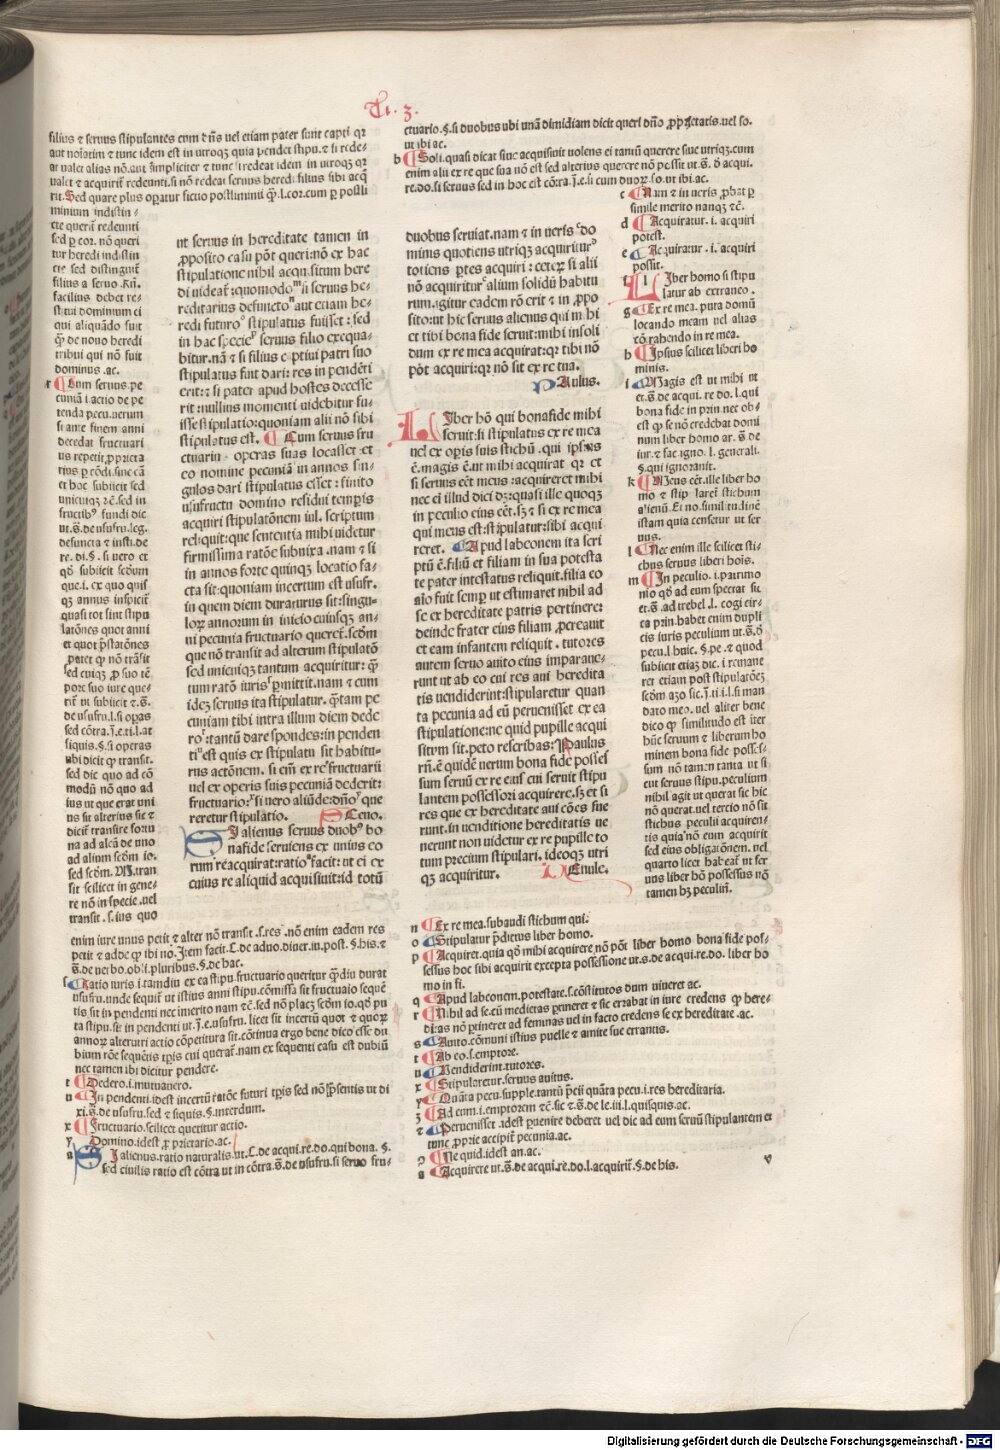 Ti. 3.
filius ⁊ seruus stipulantes cum dñs uel etiam pater sunt capti qr
aut noiatim ⁊ tunc idem est in utroqꝫ quia pendet stipu. ⁊ si rede-
at ualet alias nõ. aut simpliciter ⁊ tunc si redeat idem in utroqꝫ qr
ualet ⁊ acquirit redeunti. si nõ redeat seruus heredi filius sibi acq̃
rit. Sed quare plus oꝑatur fictio postliminii q̃ʒ .l. cor. cum ꝑ postli
minium indistin-
cte querat̃ redeunti
sed ꝑ cor. nõ queri
tur heredi indistin
cte sed distinguit̃
filius a seruo. Rñ.
facilius debet re-
stitui dominium ei
qui aliquãdo fuit
ꝙ de nouo heredi
tribui qui nõ fuit
dominus. ac.
r Cum seruus. pe
cunia .i. actio de pe
tenda pecu. uerum
si ante finem anni
decedat fructuari
us repetit ꝓprieta
rius ꝑ cõdi. sine cã
et hoc subiicit sed
unicuiqꝫ ⁊c. sed in
fructibꝰ fundi dic
ut. s. de usufru. leg.
defuncta ⁊ insti. de
re. di. §. si uero et
qð subiicit scdum
que. i. ex quo quis
qꝫ annus inspicit̃
quasi tot sint stipu
latões quot anni
et quot p̃statões
patet ꝙ nõ trãsit
sed cuiqꝫ ꝓ suo tẽ
pore suo iure que-
rit̃ ut subiicit ⁊ s.
de usufru. l. si oꝑas
sed cõtra. j. e. ti. l. at
siquis. §. si operas
ubi dicit ꝙ transit.
sed dic quo ad cõ
modũ nõ quo ad
ius ut que erat uni
us sit alterius sic ⁊
dicit̃ transire fortu
na ad alcã de uno
ad alium scdm io.
sed scdm. M. tran
sit scilicet in gene-
re nõ in specie. uel
transit. s. ius quo
enim iure unus petit ⁊ alter nõ transit .s. res. nõ enim eadem res
petit ⁊ adde ꝙ ibi no. Item facit. C. de aduo. diuer. iu. post. §. his. ⁊
s. de uerbo. obli. pluribus. §. de hac.
s Ratio iuris .i. tamdiu ex ea stipu. fructuario queritur q̃ʒdiu durat
usufru. unde sequit̃ ut istius anni stipu. cõmissa sit fructuario seque
tis sit in pendenti nec imerito nam ⁊c. sed nõ placꝫ scdm io. qð pu
ta stipu. sit in pendenti ut. j. e. usufru. licet sit incertũ quot ⁊ quoꝝ
annoꝝ alterutri actio cõpetitura sit. cõtinua ergo bene dico esse du
bium rõe sequẽtis tp̃is cui querat̃. nam ex sequenti casu est dubiũ
nec tamen ibi dicitur pendere.
t Dedero .i. mutuauero.
u In pendenti. idest incertũ ratõe futuri tp̃is sed nõ p̃sentis ut di
xi. s. de usufru. sed ⁊ siquis. §. interdum.
x Fructuario. scilicet queritur actio.
y Domino. idest ꝓprietario. ac.
a SI alienus. ratio naturalis. ut. C. de acqui. re. do. qui bona. §.
sed ciuilis ratio est cõtra ut in cõtra. s. de usufru. si seruo fru-
ut seruus in hereditate tamen in
ꝓposito casu põt queri: nõ ex hac
stipulatione nihil acquisitum here
di uideat̃: quomodo si seruus he-
reditarius defuncto aut etiam he-
redi futuro stipulatus fuisset: sed
in hac specie seruus filio exequa-
bitur. nã ⁊ si filius captiui patri suo
stipulatus fuit dari: res in pendẽti
erit: ⁊ si pater apud hostes decesse
rit: nullius momenti uidebitur fu-
isse stipulatio: quoniam alii nõ sibi
stipulatus est. Cum seruus fru
ctuarius operas suas locasset: et
eo nomine pecuniã in annos sin-
gulos dari stipulatus esset: finito
usufructu domino residui temꝑis
acquiri stipulatõnem iul. scriptum
reliquit: que sententia mihi uidetur
firmissima ratõe subnixa. nam ⁊ si
in annos forte quinqꝫ locatio fa-
cta sit: quoniam incertum est usufr.
in quem diem duraturus sit: singu-
loꝝ annorum in initio cuiusqꝫ an-
ni pecunia fructuario queret̃. scdm
que nõ transit ad alterum stipulatõ
sed unicuiqꝫ tantum acquiritur: q̃ʒ
tum ratõ iuris ꝑmittit. nam ⁊ cum
ideꝫ seruus ita stipulatur. q̃ʒtam pe
cuniam tibi intra illum diem dede
ro: tantũ dare spondes: in penden
ti est quis ex stipulatu sit habitu-
rus actõnem. si em̃ ex re fructuarii
uel ex operis suis pecuniã dederit:
fructuario: si uero aliũde: dñõ que
reretur stipulatio. Ceuo.
SI alienus seruus duobꝰ bo
nafide seruiens ex unius eo
rum re acquirat: ratio facit: ut ei ex
cuius re aliquid acquisiuit: id totũ
ctuario. §. si duobus ubi unã dimidiam dicit queri dño ꝓprietatis. uel so.
ut ibi ac.
b Soli. quasi dicat siue acquisiuit uolens ei tantũ querere siue utriqꝫ. cum
enim alii ex re que sua nõ est sed alterius querere nõ possit ut. s. d̃ acqui.
re. do. si seruus sed in hoc est cõtra. j. e. si cum duoꝝ. so. ut ibi. ac.
c Nam ⁊ in ueris. ꝓbat ꝑ
simile merito nanqꝫ ⁊c.
d Acquiratur. i. acquiri
potest.
e Acquiratur. i. acquiri
possit.
f LIber homo si stipu
latur ab extraneo.
g Ex re mea. puta domũ
locando meam uel alias
cõtrahendo in re mea.
h Ipsius scilicet liberi ho
minis.
i Magis est ut mihi ut
et. s. de acqui. re. do. l. qui
bona fide in prin. nec ob-
est ꝙ se nõ credebat domi
num liber homo ar. s. de
iur. ⁊ fac. igno. l. generali.
§. qui ignorauit.
k Meus eẽt. ille liber ho
mo ⁊ stipularet̃ stichum
alienũ. Et no. similitudinẽ
istam quia censetur ut ser
uus.
l Nec enim ille scilicet sti-
chus seruus liberi hoĩs.
m In peculio. i. patrimo
nio qð ad eum spectat sic
et. s. ad trebel. l. cogi cir-
ca prin. habet enim dupli
cis iuris peculium ut. s. d̃
pecu. l. huic. §. pe. ⁊ quod
subiicit etiaꝫ dic. i. remane
ret etiam post stipulatõeꝫ
scdm azo. sic. j. ti. i. l. si man
dato meo. uel aliter bene
dico ꝙ similitudo est iter
hũc seruum ⁊ liberum ho
minem bona fide posses-
sum nõ tamen tanta ut si
cut seruus stipu. peculium
nihil agit ut querat sic hic
nõ querat. uel tercio nõ sit
stichus peculii acquiren-
tis quia nõ eum acquirit
sed eius obligatõnem. uel
quarto licet habeat̃ ut ser
uus liber hõ possessus nõ
tamen hꝫ peculiũ.
duobus seruiat. nam ⁊ in ueris do
minus quotiens utriqꝫ acquiritur
totiens ꝑtes acquiri: ceteꝝ si alii
nõ acquiritur alium solidũ habitu
rum. igitur eadem rõ erit ⁊ in ꝓpo
sito: ut hic seruus alienus qui mihi
et tibi bona fide seruit: mihi insoli
dum ex re mea acquirat: qr tibi nõ
põt acquiri: qr nõ sit ex re tua.
Paulus.
LIber hõ qui bonafide mihi
seruit: si stipulatus ex re mea
uel ex opĩs suis stichũ. qui ipsius
ẽ. magis ẽ. ut mihi acquirat qr et
si seruus eẽt meus: acquireret mihi
nec ei illud dici dꝫ: quasi ille quoqꝫ
in peculio eius eẽt. sꝫ ⁊ si ex re mea
qui meus est: stipulatur: sibi acqui
reret. Apud labeonem ita scri
ptũ ẽ. filiũ et filiam in sua potesta
te pater intestatus reliquit. filia eo
aĩo fuit semꝑ ut estimaret nihil ad
se ex hereditate patris pertinere:
deinde frater eius filiam ꝓcreauit
et eam infantem reliquit. tutores
autem seruo auito eius imparaue-
runt ut ab eo cui res aui heredita
tis uendiderint: stipularetur quan
ta pecunia ad eũ peruenisset ex ea
stipulatione: ne quid pupille acqui
situm sit. peto rescribas: Paulus
rñ. ẽ quidẽ uerum bona fide posses
sum seruũ ex re eius cui seruit stipu
lantem possessori acquirere. sꝫ et si
res que ex hereditate aui cões fue
runt. in uenditione hereditatis ue
nerunt non uidetur ex re pupille to
tum precium stipulari. ideoqꝫ utri
qꝫ acquiritur. Enule.
n Ex re mea. subaudi stichum qui.
o Stipulatur p̃dictus liber homo.
p Acquiret. quia qð mihi acquirere nõ põt liber homo bona fide pos-
sessus hoc sibi acquirit excepta possessione ut. s. de acqui. re. do. liber ho
mo in fi.
q Apud labeonem. potestate. s. cõstitutos dum uiueret ac.
r Nihil ad se. cũ medietas ꝑtineret ⁊ sic errabat in iure credens ꝙ here-
ditas nõ ꝑtineret ad feminas uel in facto credens se exhereditate. ac.
s Auito. cõmuni istius puelle ⁊ amite sue errantis.
t Ab eo. s. emptore.
u Uendiderint. tutores.
x Stipularetur. seruus auitus.
y Quãta pecu. supple. tantũ p̃cii quãta pecu. i. res hereditaria.
z Ad eum. i. emptorem ⁊c. sic ⁊. s. de le. iii. l. quisquis. ac.
⁊ Peruenisset. idest ꝑuenire deberet uel dic ad eum seruũ stipulantem et
tunc ꝓprie accipit̃ pecunia. ac.
Ne quid. idest an. ac.
a Acquirere ut. s. de acqui. re. do. l. acquirit̃. §. de his.
Digitalisierung gefördert durch die Deutsche Forschungsgemeinschaft - DFG